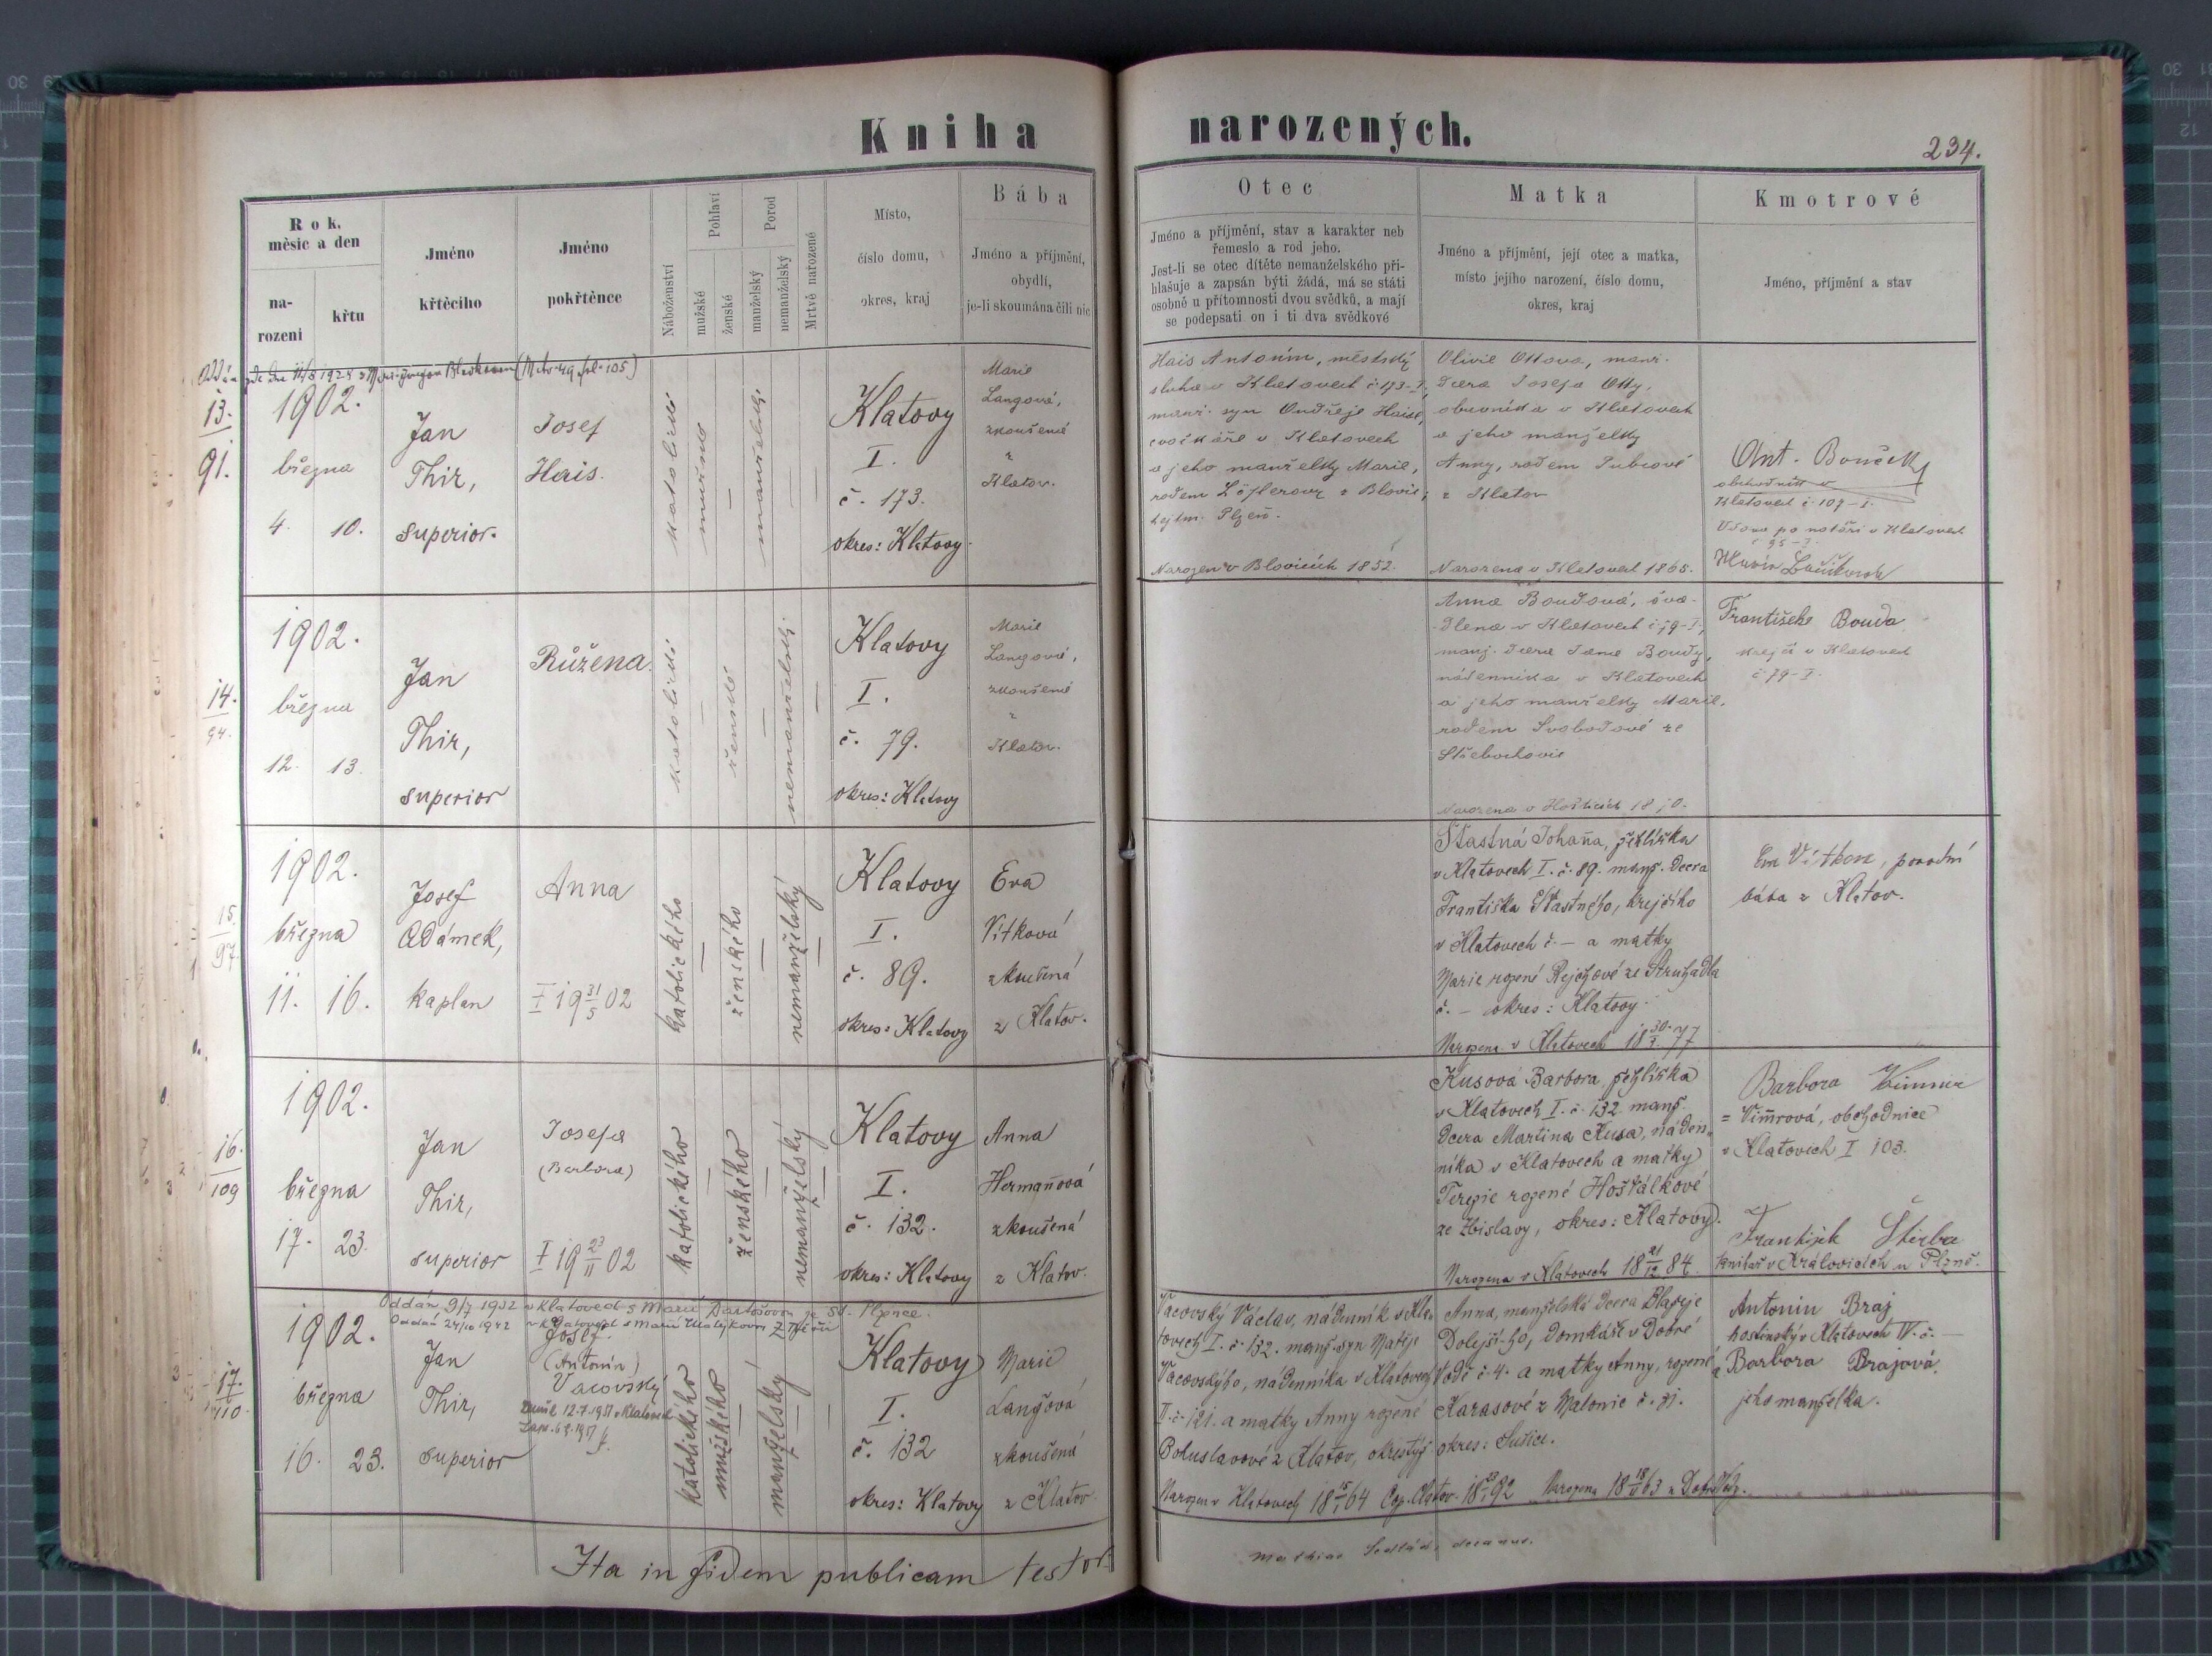 Kniha narozených.
234.
Rok,
měsíc a den
na-
rození
křtu
Jméno
křtěcího
Jméno
pokřtěnce
Náboženství
Pohlaví
mužské
ženské
Porod
manželský
nemanželský
Mrtvě narozené
Místo,
číslo domu,
okres, kraj
Bába
Jméno a příjmění,
obydlí,
je-li skoumána čili nic
Otec
Jméno a příjmění, stav a karakter neb
řemeslo a rod jeho.
Jest-li se otec dítěte nemanželského při-
hlašuje a zapsán býti žádá, má se státi
osobně u přítomnosti dvou svědků, a mají
se podepsati on i ti dva svědkové
Matka
Jméno a příjmění, její otec a matka,
místo jejího narození, číslo domu,
okres, kraj
Kmotrové
Jméno, příjmění a stav
13.
91.
1902.
března
4. 10.
Jan
Thir,
superior.
Josef
Hais.
katolické
mužské
manželský
Klatovy
I.
č. 173.
okres: Klatovy.
Marie
Langová,
zkoušená
z
Klatov.
Hais Antonín, městský
sluha v Klatovech č. 173-I,
manž. syn Ondřeje Haise,
cvočkáře v Klatovech
a jeho manželky Marie,
rodem Löflerovy z Blovic,
hejtm. Plzeň.
Narozen v Blovicích 1852.
Olivie Ottova, manž.
dcera Josefa Otty,
obuvníka v Klatovech
a jeho manželky
Anny, rodem
z Klatov
Narozena v Klatovech 1865.
Ant. Bouček
obchodník v
Klatovech č. 107-I.
Vdova po notáři v Klatovech
č 95-I.
Marie
14.
94.
1902.
března
12. 13.
Jan
Thir,
superior
Růžena.
katolické
ženské
nemanželský.
Klatovy
I.
č. 79.
okres: Klatovy
Marie
Langová,
zkoušená
z
Klatov.
Anna Boudová, sva-
v Klatovech č. 79-I,
manž. dcera Jana Boudy,
nádenníka v Klatovech
a jeho manželky Marie,
rodem Svobodové ze
Střebochovic
Narozena v
František Bouda
krejčí v Klatovech
č 79-I.
15.
97.
1902.
března
11. 16.
Josef
Adámek,
kaplan
Anna
I 19 31/5 02
katolického
ženského
nemanželský
Klatovy
I.
č. 89.
okres: Klatovy
Eva
Vítková
zkoušená
z Klatov.
Šťastná Johana, žehlířka
v Klatovech I. č. 89. manž. dcera
Františka Šťastného, krejčího
v Klatovech č. – a matky
Marie rozené Rejchové ze Struhadla
č. – okres: Klatovy.
Narozena v Klatovech 18 30/ 77
Em Vítková, porodní
bába z Klatov.
16.
109
1902.
března
17. 23.
Jan
Thir,
superior
Josefa
(Barbora)
I 19 23/11 02
katolického
ženského
nemanželský
Klatovy
I.
č. 132.
okres: Klatovy
Anna
Hermanová
zkoušená
z Klatov.
Kusová Barbora, žehlířka
v Klatovech I. č. 132. manž.
dcera Martina Kusa, náden-
níka v Klatovech a matky
Terezie rozené Hošťálkové
ze Zbislavy, okres: Klatovy.
Narozena v Klatovech 18 21/12 84.
Barbora Vimmer
= Vimrová, obchodnice
v Klatovech I 103.
František Štěrba
knihař v Královicích u Plzně.
17.
110.
Oddán 9/7 1932 v Klatovech s Marií Bartošovou ze St. Plzence.
Oddán 24/10 1942 v Klatovech s Marií
1902.
března
16. 23.
Jan
Thir,
superior
Josef.
(Antonín)
Vacovský
Zemřel 12.7.1951 v Klatovech
Zaps. 6.9.1951
katolického
mužského
manželský
Klatovy
I.
č. 132
okres: Klatovy
Marie
Langová
zkoušená
z Klatov.
Vacovský Václav, nádenník v Kla-
tovech I. č. 132. manž. syn Matěje
Vacovského, nádenníka v Klatovech
II. č. 121. a matky Anny rozené
Bohuslavové z Klatov, okres týž
Narozen v Klatovech 18 15/1 64 Cop. Klatov. 18 92
Anna, manželská dcera Blažeje
Dolejší-ho, domkáře v Dobré
Vodě č. 4. a matky Anny, rozené
Karasové z Malonic č. 31.
okres: Sušice.
Narozena 18 18/ 63 v Dobré Vodě.
Antonín Braj
hostinský v Klatovech IV. č. –
a Barbora Brajová
jeho manželka.
Ita in fidem publicam testor
Mathias Sedlák, decanus.